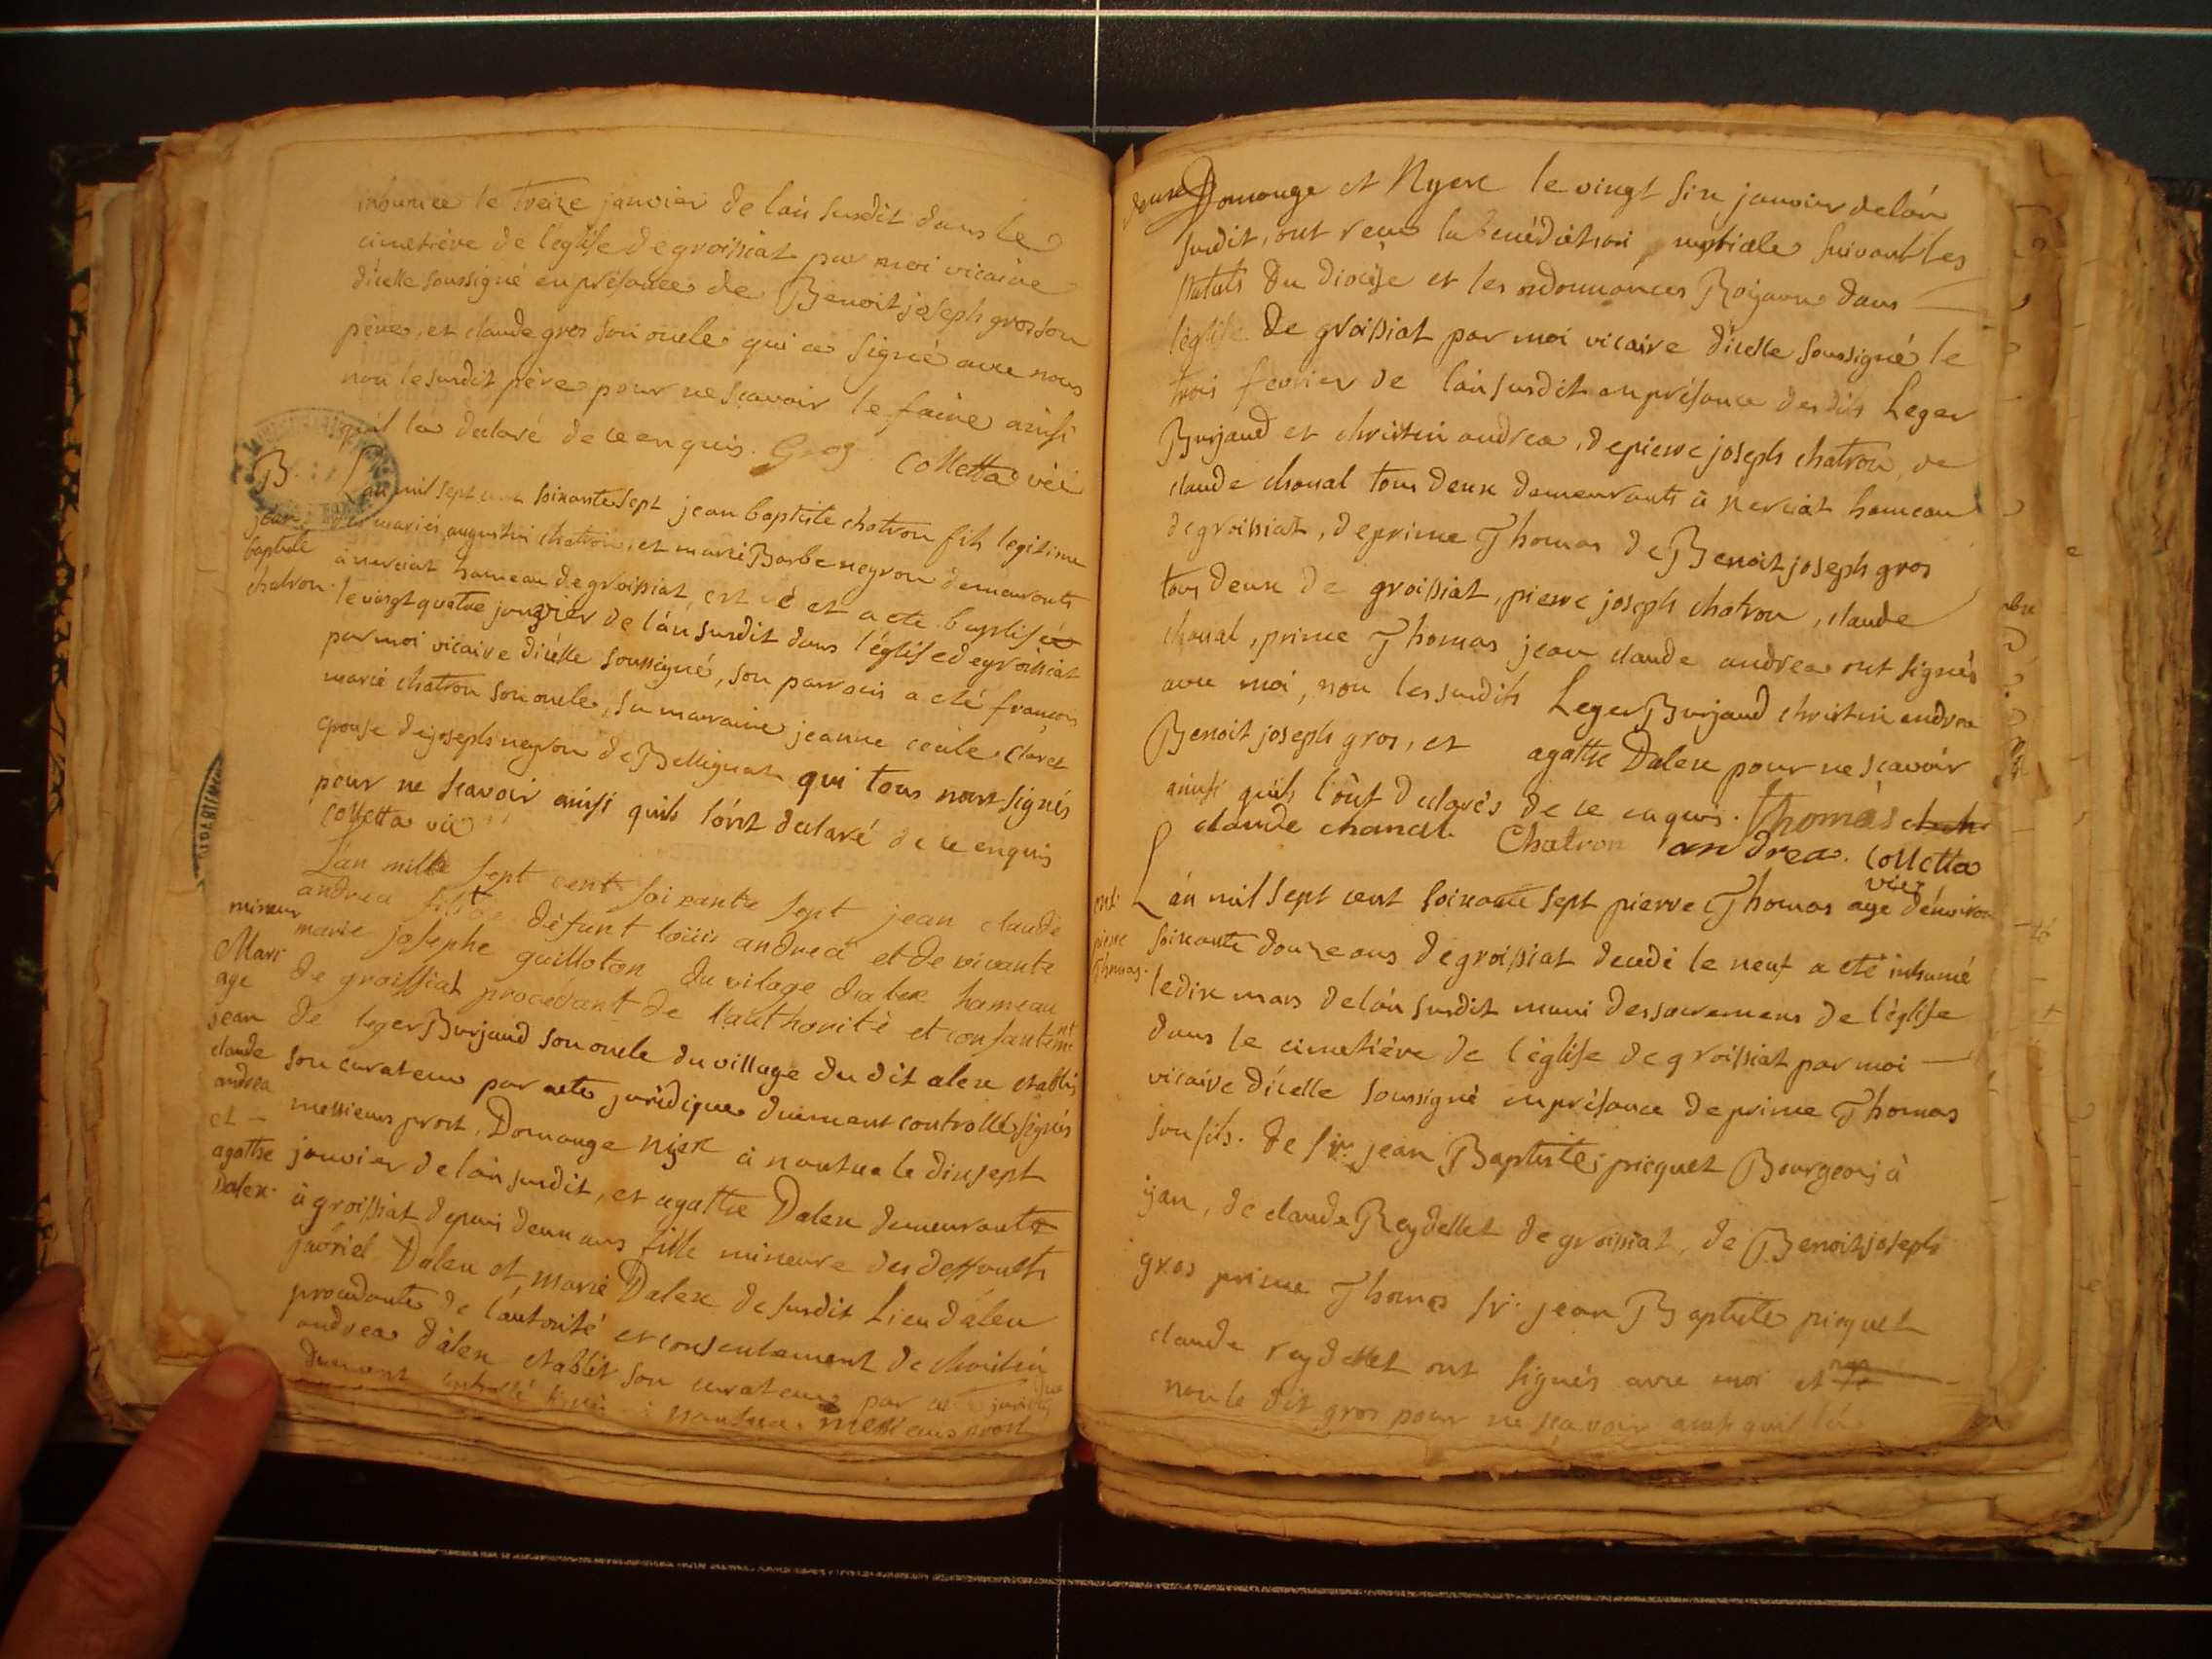 inhumée le treize janvier de l'an susdit dans le
cimetière de l'église de groissiat par moi vicaire
d'icelle soussigné en présance de Benoit joseph gros son
père, et claude gros son oncle qui a signé avec nous
non le susdit père pour ne scavoir le faire ainsi
qu'il la declaré de ce enquis. Gros colletta vic
B. L'an mil sept cent soixante sept jean baptiste chatron fils legitime
jean des mariés augustin chatron, et marie Barbe neyron demeurants
baptiste à nerciat hameau de groissiat, est né et a eté baptisé
chatron. le vingt quatre janvier de l'an susdit dans l'église de groissiat
par moi vicaire d'icelle soussigné, son parrain a eté françois
marie chatron son oncle, sa marraine jeanne cecile claret
epouse de joseph neyron de Bellignat qui tous nont signés
pour ne scavoir ainsi quils lont declaré de ce enquis
colletta vic
L'an mille sept cent soixante sept jean claude
andrea fils de défunt loüis andrea et de vivante
mineur marie josephe guilloton du vilage dalex hameau
Mari de groissiat procédant de l'authorité et consantemnt
age
jean de leger Burjaud son oncle du village du dit alex etabli
claude son curateur par acte juridique duement controllé signés
andrea messieurs prost, Domange nyer à nantua le dixsept
et -
agathe janvier de l'an susdit, et agathe Dalex demeurante
Dalex. à groissiat depuis deux ans fille mineure des deffunts
Dalex et marie Dalex de susdit Lieu d'alex
procedante de l'autorité et consentement de christin
andrea d'alex etablit son curateur par acte juridique
duement controllé signés à nantua messieurs prost
Domange et Nyere le vingt six janvier de l'an
susdit, ont reçu la benédiction nuptiale suivant les
statuts du diocèse et les ordonnances Roijaux dans
l'église de groissiat par moi vicaire d'icelle soussigné le
trois fevrier de l'an susdit en présance desdits Leger
Burjaud et christin andrea, de pierre joseph chatron, de
claude chonal tous deux demeurants à nerciat hameau
de groissiat, de prime Thomas de Benoit joseph gros
tous deux de groissiat, pierre joseph chatron, claude
chonal, prime Thomas jean claude andrea ont signés
avec moi, non les susdits Leger Burjaud christin andrea
Benoit joseph gros, et agathe Dalex pour ne scavoir
ainsi quils l'ont declarés de ce enquis. Thomas
claude chanal Chatron andrea. Colletta
vic
ent. L'an mil sept cent soixante sept pierre Thomas age d'environ
pierre soixante douze ans de groissiat decedé le neuf a eté inhumé
Thomas. le dix mars de l'an susdit muni des sacremens de l'église
dans le cimetière de l'église de groissiat par moi
vicaire d'icelle soussigné en présance de prime Thomas
son fils. de Sr. jean Baptiste picquet Bourgeois à
ijan, de claude Reydellet de groissiat, de Benoit joseph
gros prime Thomas Sr. jean Baptiste picquet
claude reydellet ont signés avec moi et
non le dit gros pour ne sçavoir ainsi quil la